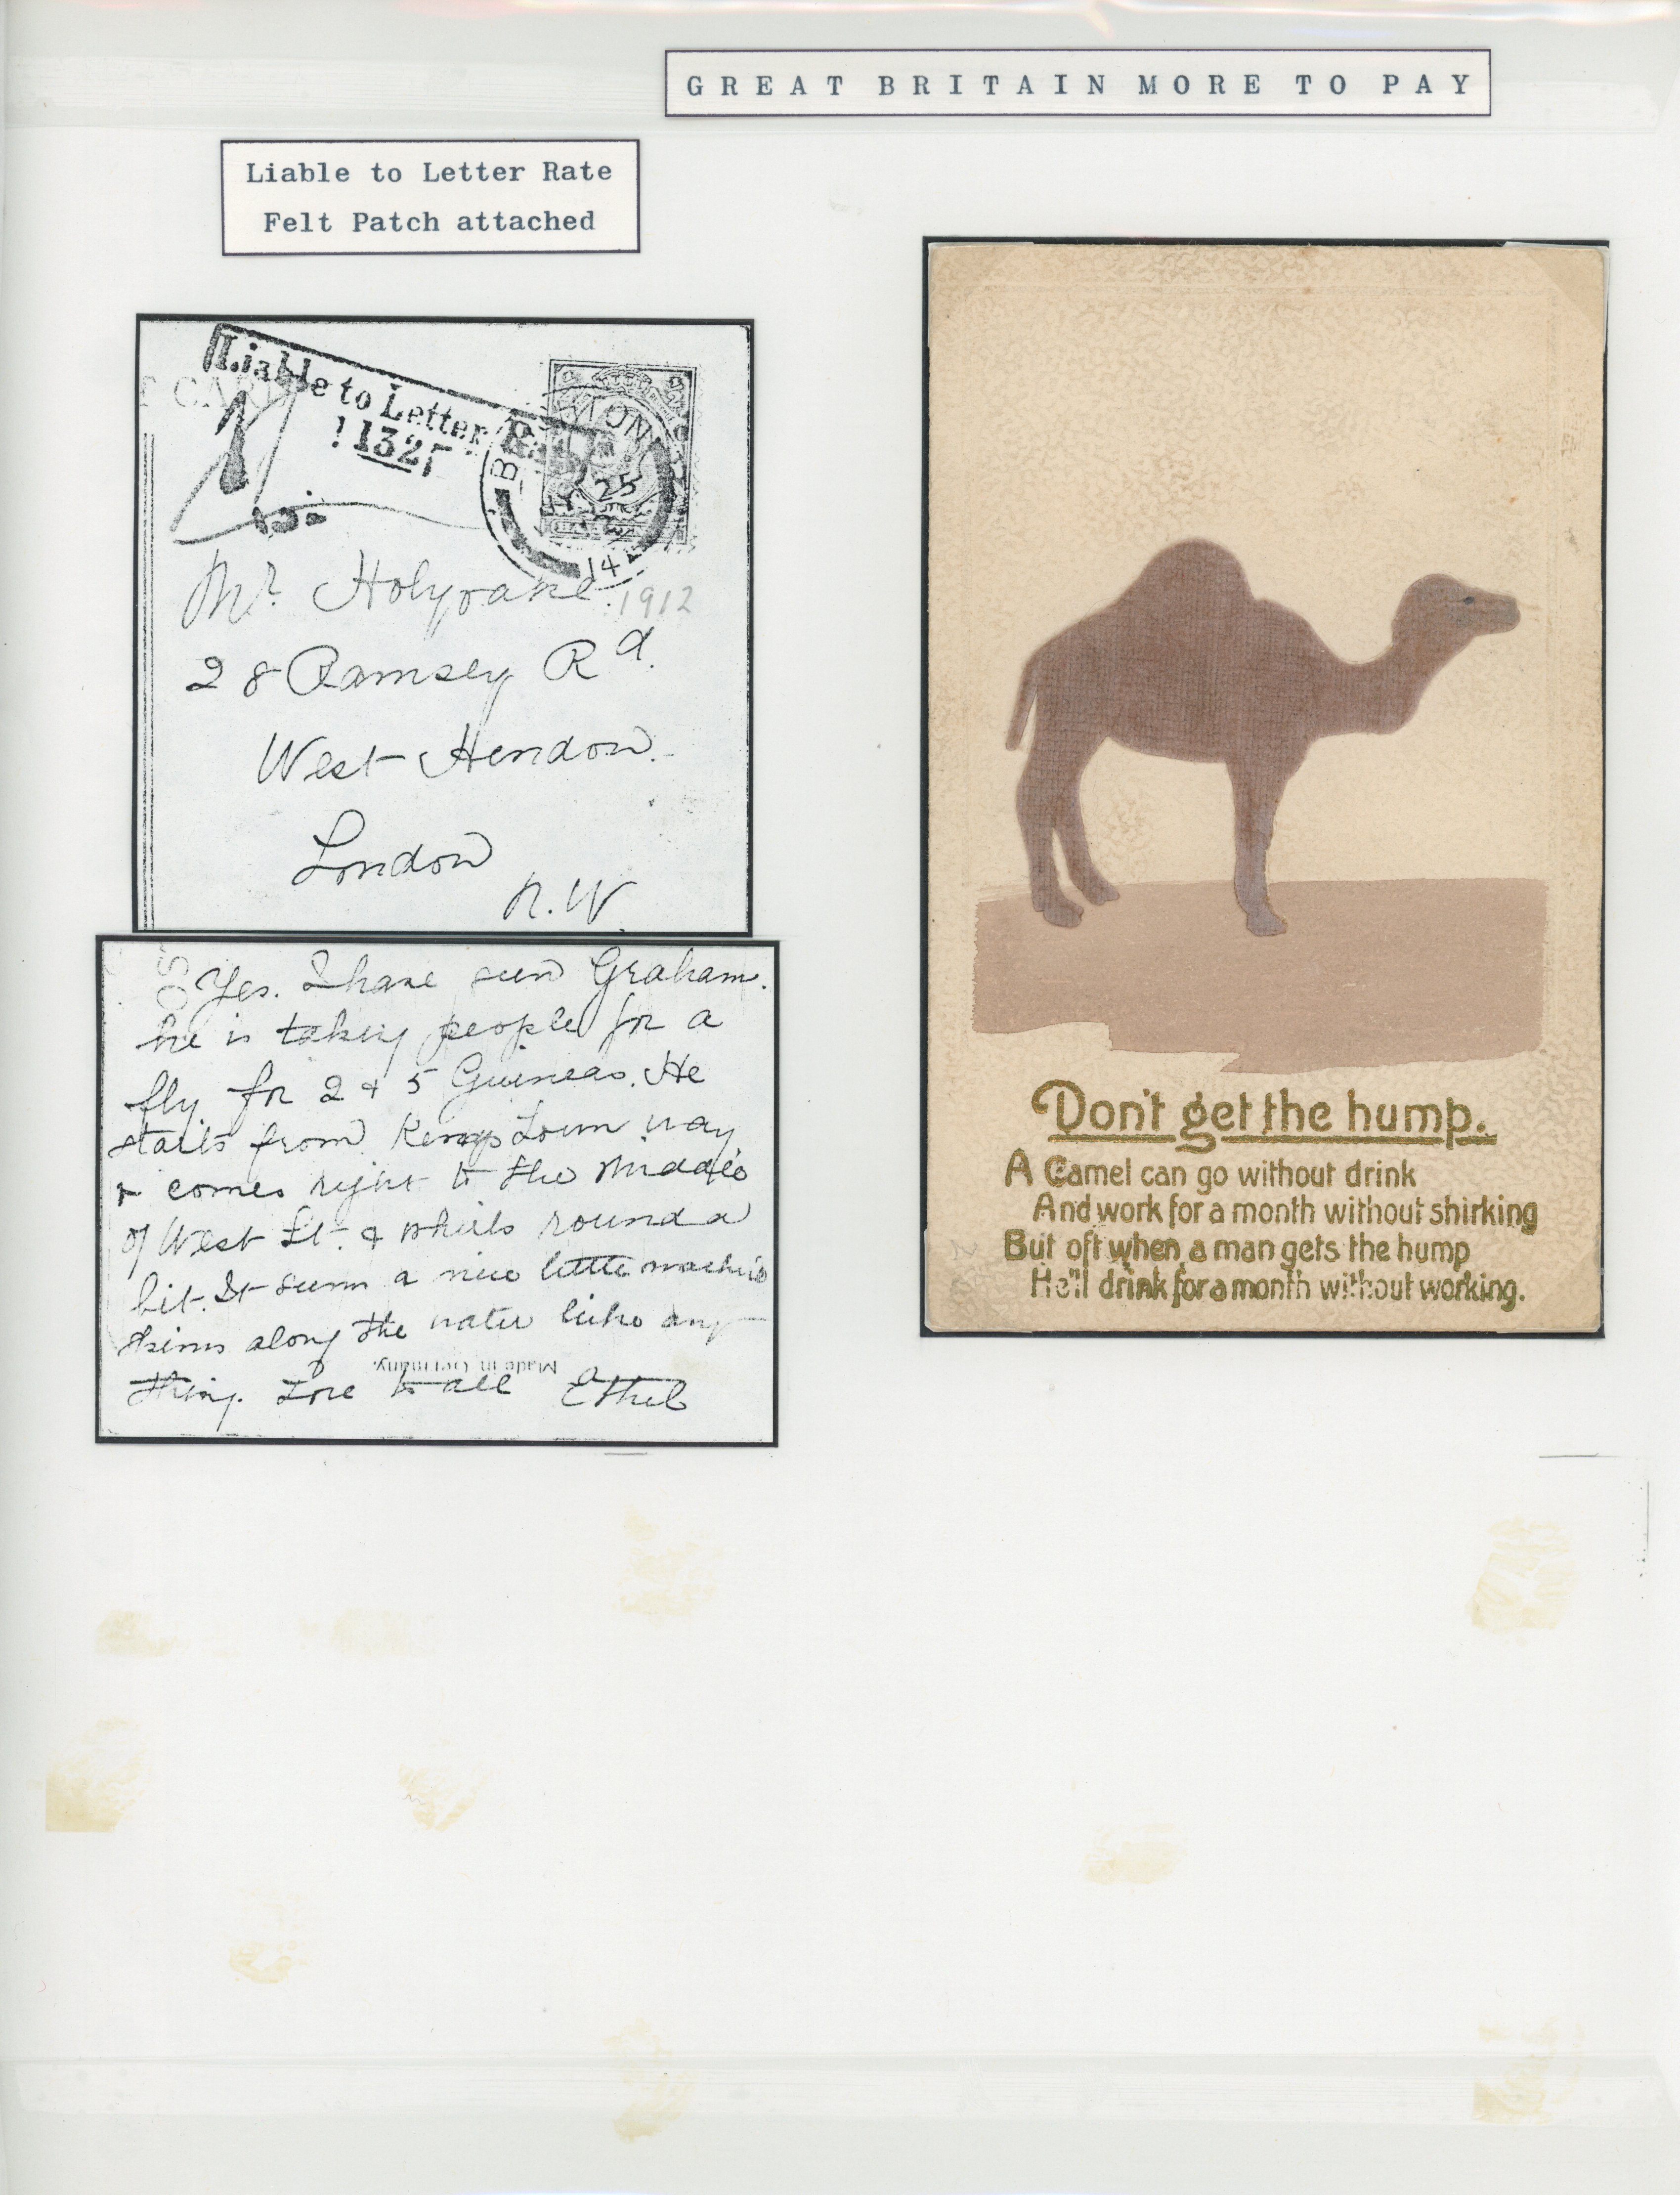 GREAT BRITAIN MORE TO PAY
Liable to Letter Rate
Felt Patch attached
Liable to Letter Rate
1327
25
14
Mr. Holyoake
1912
28 Ramsey Rd.
West Hendon.
London
N.W.
Yes. I have seen Graham.
he is taking people for a
fly for 2 & 5 Guineas. He
starts from Kemp Town way
& comes right to the middle
of West St. & whirls round a
bit. It seems a nice little machine
skims along the water like any
thing. Love to all Ethel
Made in Germany.
Don't get the hump.
A Camel can go without drink
And work for a month without shirking
But oft when a man gets the hump
He'll drink for a month without working.